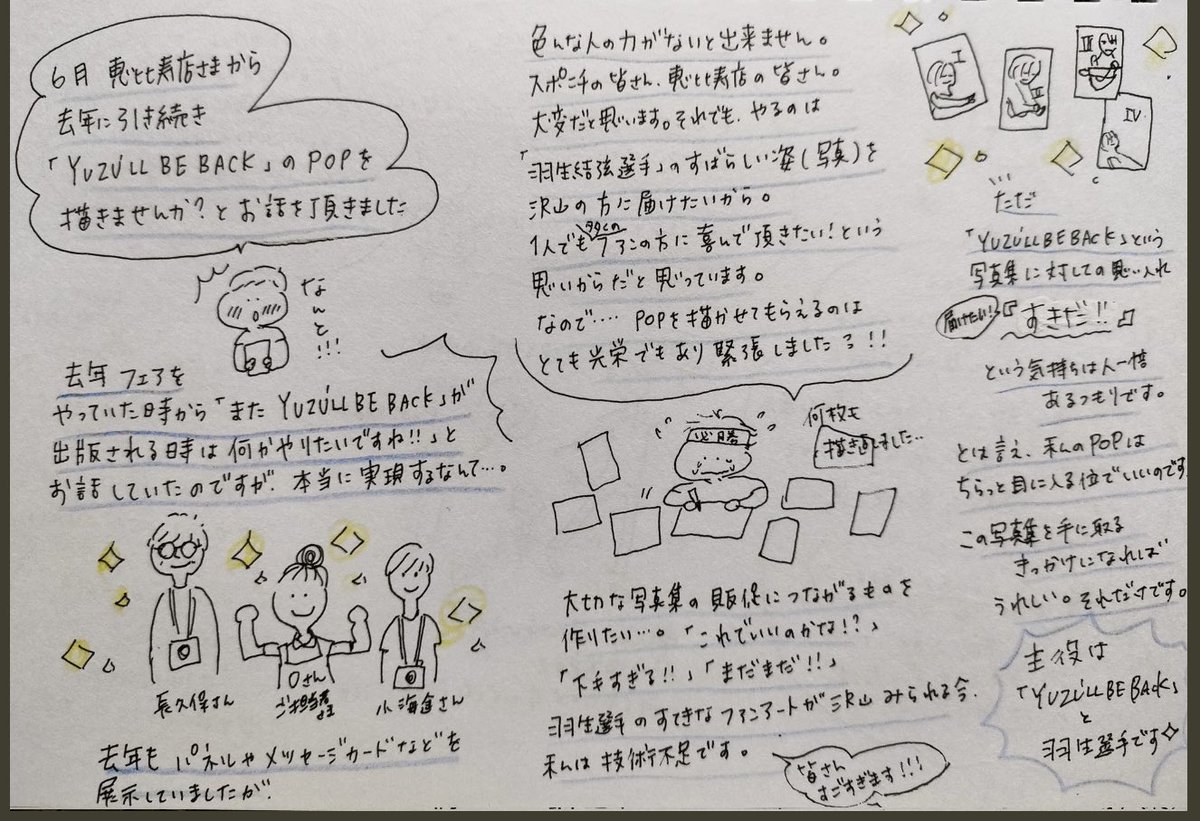 6月 恵比寿店さまから
去年に引き続き
「YUZU'LL BE BACK」のPOPを
描きませんか?とお話を頂きました
なんと!!!
去年フェアを
やっていた時から「また YUZU'LL BE BACK」が
出版される時は何かやりたいですね!!」と
お話していたのですが、本当に実現するなんて…。
長久保さん
Oさん
ご担当者さま
小海途さん
去年も パネルやメッセージカードなどを
展示していましたが、
色んな人の力がないと出来ません。
スポニチの皆さん、恵比寿店の皆さん。
大変だと思います。それでも、やるのは
「羽生結弦選手」のすばらしい姿(写真)を
沢山の方に届けたいから。
1人でも多くのファンの方に喜んで頂きたい!という
思いからだと思っています。
なので‥‥ POPを描かせてもらえるのは
とても光栄でもあり緊張しました!!
必勝
何枚も
描き直しました…
大切な写真集の販促につながるものを
作りたい…。「これでいいのかな!?」
「下手すぎる!!」「まだまだ!!」
羽生選手のすてきなファンアートが沢山みられる今、
私は技術不足です。
皆さん
すごすぎます!!!
I
II
III
IV
ただ
「YUZU'LL BE BACK」という
写真集に対しての思い入れ
届けたい!『すきだ!!』
という気持ちは人一倍
あるつもりです。
とは言え、私のPOPは
ちらっと目に入る位でいいのです
この写真集を手に取る
きっかけになれれば
うれしい。それだけです。
主役は
「YUZU'LL BE BACK」
と
羽生選手です